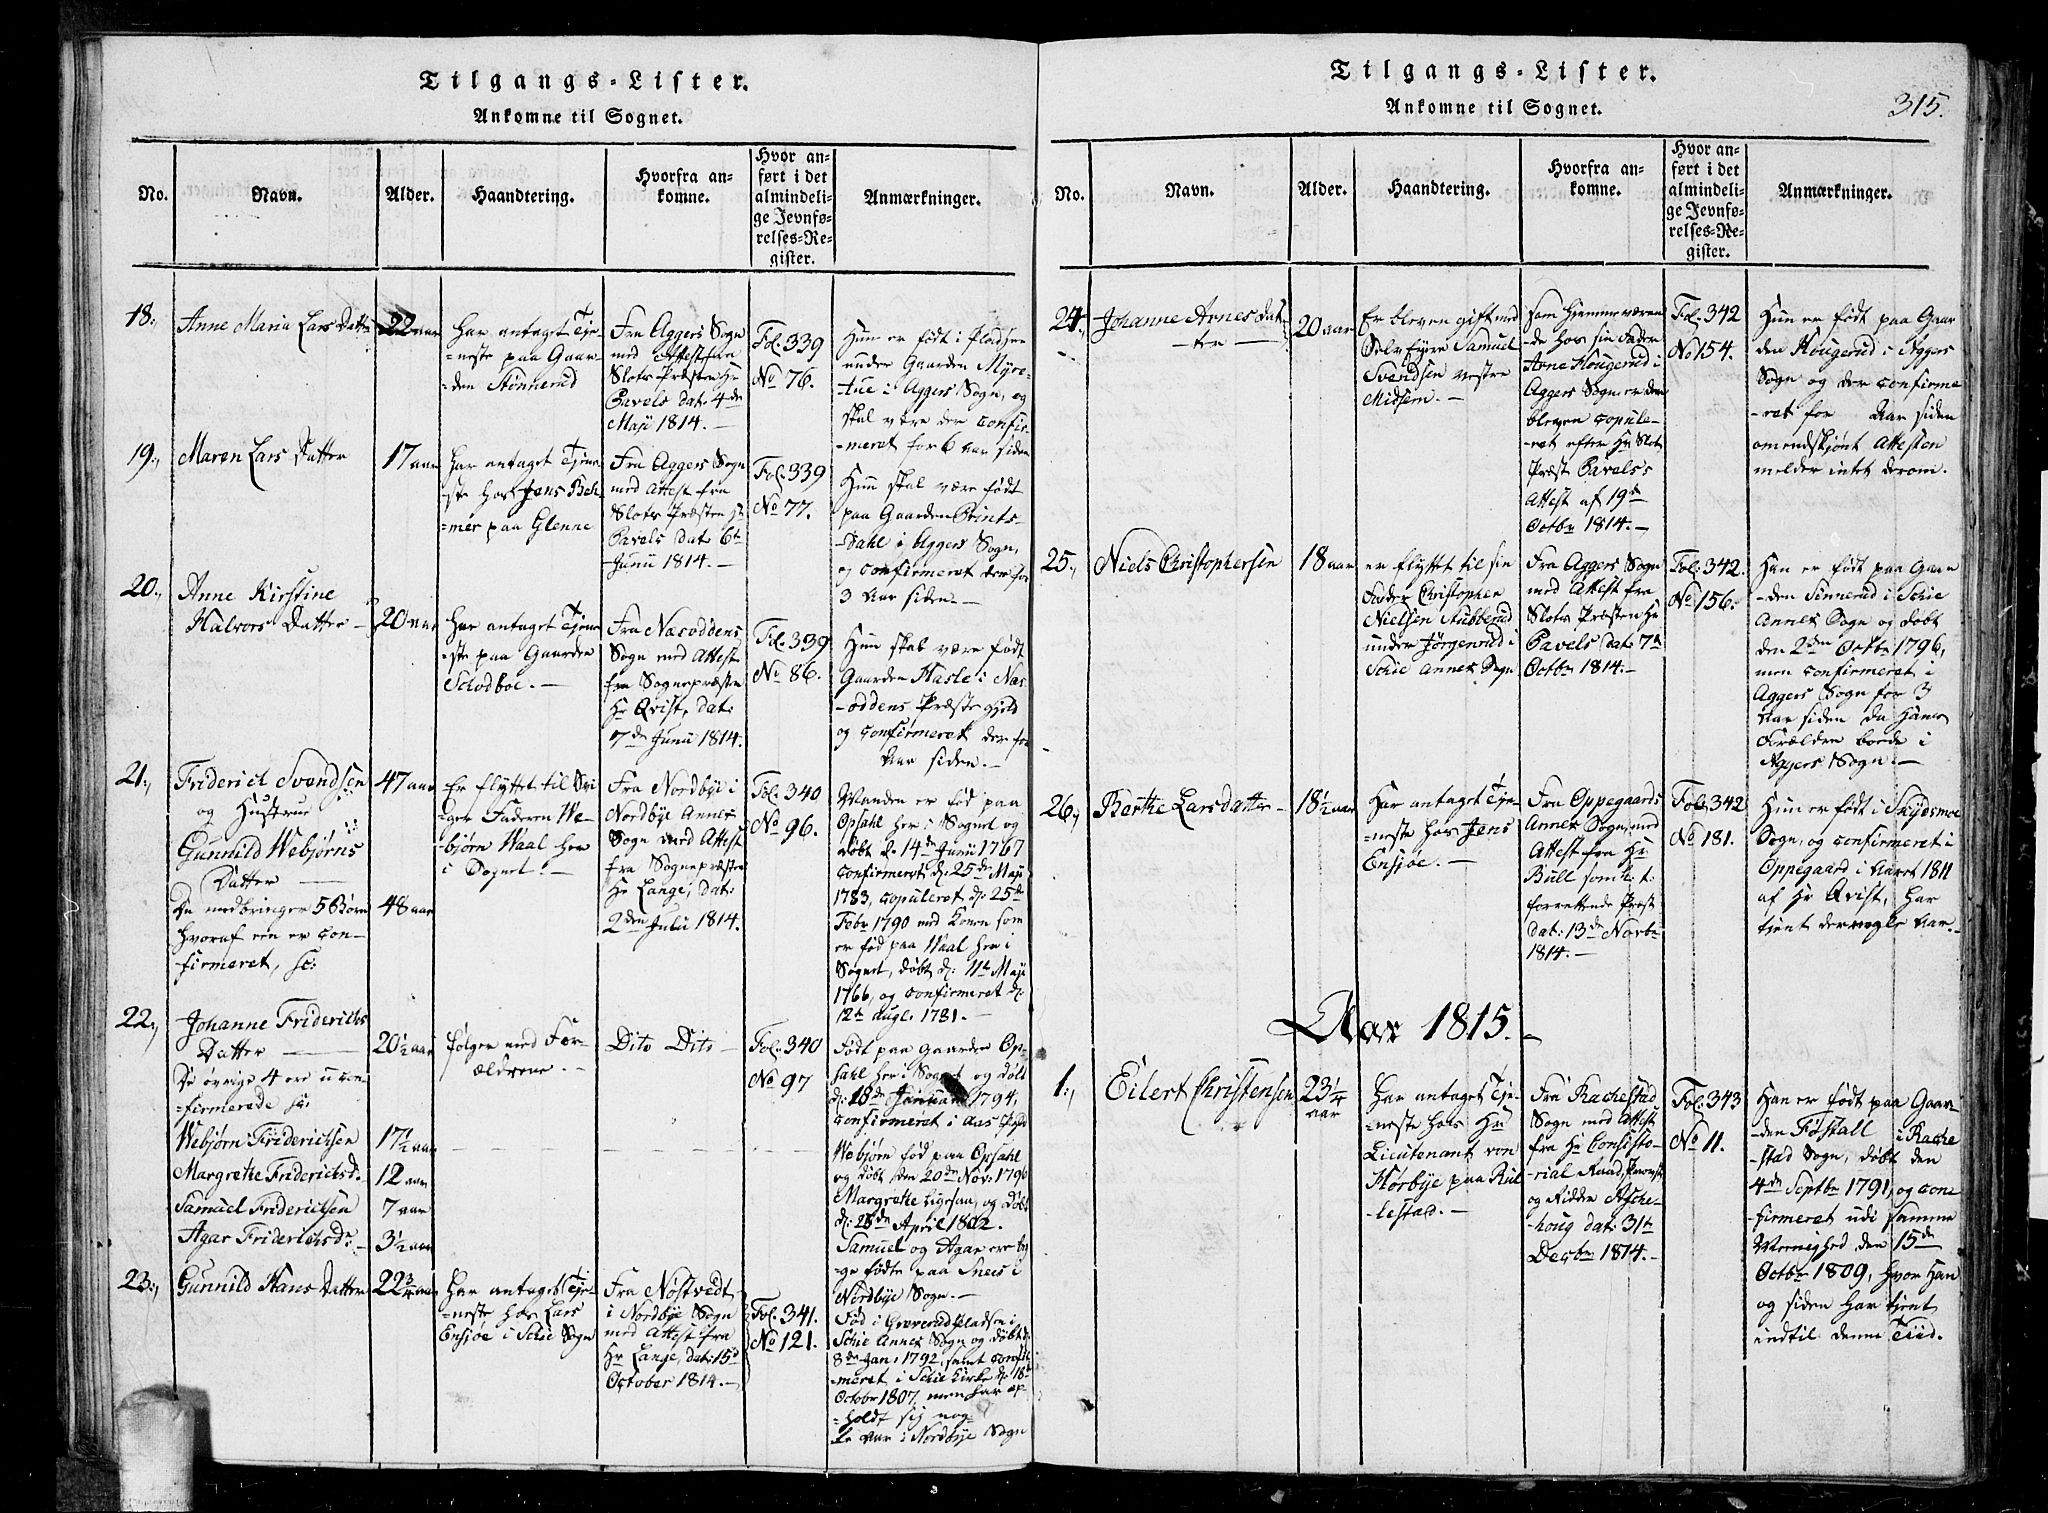 Tilgangs-Lister.
Ankomne til Sognet.
No.
Navn.
Alder.
Haandtering.
Hvorfra an-
komne.
Hvor an-
ført i det
almindeli-
ge Jevnfø-
relses-Re-
gister.
Anmærkninger.
18.,
Anne Maria Lars Datter
22 aar
har antaget Tje-
-neste paa Gaar-
-den Stönnerud
Fra Aggers Sogn
med Attest fra
Slots Præsten Hr
Pavels dat: 4de
Maji 1814.
Fol. 339
No 76.
Hun er født i Pladsen
under Gaarden Myre-
-tue i Aggers Sogn, og
skal være der confir-
-meret for 6 aar siden
19.,
Maren Lars Datter
17 aar
har antaget Tjene
-ste hos Jens Beh-
-mer paa Glenne
Fra Aggers Sogn
med Attest fra
Slots Præsten Hr
Pavels dat: 6te
Junii 1814.
Fol. 339
No 77.
Hun skal være født
paa Gaarden Prints-
-dahl i Aggers Sogn,
og confirmeret der for
3 Aar siden.
20.,
Anne Kirstine
Halvors Datter
20 aar
har antaget Tjene
-ste paa Gaarden
Schodboe.
Fra Næsoddens
Sogn med Attest
fra Sognepræsten
Hr Qvist, dat:
7de Junii 1814.
Fol. 339
No 86.
Hun skal være født
Gaarden Hasle i Næs
-oddens Præstegjeld
og confirmeret der for
Aar siden.
21.,
Friderich Svendsen
og Hustrue
Gunnild Webjørns
Datter
De medbringer 5 Børn
hvoraf een er con-
firmeret, sc:
47 aar
48 aar
Er flyttet til Svi
-ger Faderen We-
-bjørn Waal her
i Sognet.
Fra Nordbye i
Nordbye Annex
Sogn med Attest
fra Sognepræsten
Hr Lange, dat:
2den Julii 1814.
Fol. 340
No 96.
Manden er fød paa
Opsahl her i Sognet og
døbt d. 14de Junii 1767
confirmeret d: 25de Maji
1783, copuleret d: 25de
Febr 1790 med Konen som
er fød paa Waal her i
Sognet, døbt d: 11te Maji
1766, og confirmeret d:
12te Aug: 1781.
22.,
Johanne Friderichs
Datter
De øvrige 4 ere ucon-
-firmerede sc:
Webjørn Friderichsen
Margrethe Friderichsd.
Samuel Friderichsen
Agar Friderichsdr.
20½ aar
17½ aar
12 aar
7 aar
3½ aar
følger med For-
ældrene.
Dito Dito
Fol. 340
No 97
Født paa Gaarden Op-
sahl her i Sognet og døbt
d: 18de Januar 1794,
confirmeret i Aas
Webjørn fød paa Opsahl
og døbt den 20de Nov: 1796
Margrethe ligesaa, og døbt
d: 28de April 1802.
Samuel og Agar ere beg
-ge fødte paa Sneis i
Nordbye Sogn.
23.,
Gunnild Hans Datter
22¾ aar
har antaget Tje-
-neste hos Lars
Ensjøe i Schie Sogn
Fra Nøstvedt
i Nordbye Sogn
med Attest fra
Hr Lange, dat: 15de
October 1814.
Fol. 341.
No 121.
Fød i Pladsen i
Schie Annex Sogn og døbt d:
8de Jan: 1792, samt confir
-meret i Schie Kirke d: 18de
Octobr 1807, men har op-
-holdt sig nog-
le aar i Nordbye Sogn
Tilgangs-Lister.
Ankomne til Sognet.
315.
No.
Navn.
Alder.
Haandtering.
Hvorfra an-
komne.
Hvor an-
ført i det
almindeli-
ge Jevnfø-
relses-Re-
gister.
Anmærkninger.
24.,
Johanne Arnes Dat-
ter
20 aar
Er bleven gift med
Selv Eyer Samuel
Svendsen vestre
Midsem.
som hjemmeværen
de hos sin Fader
Arne Hougerud i
Aggers Sogn er den
bleven copule-
-ret efter Hr Slots
Præst Pavels's
Attest af 19de
Octbr 1814.
Fol. 342
No 154.
Hun er født paa Gaar
den Hougerud i Aggers
Sogn og der confirme
-ret for Aar siden
omendskjønt Attesten
melder intet derom.
25.,
Niels Christophersen
18 aar
er flyttet til sin
Fader Christopher
Nielsen Stubberud
under Jørgenrud i
Schie Annex Sogn
Fra Aggers Sogn
med Attest fra
Slots Præsten Hr
Pavels dat: 7de
Octbr 1814.
Fol. 342.
No 156.
Han er født paa Gaar
-den Sinnerud i Schie
Annex Sogn og døbt
den 2den Octbr 1796,
men confirmeret i
Aggers Sogn for 3
Aar siden da hans
Forældre boede i
Aggers Sogn.
26.,
Berthe Larsdatter
18½ aar
Har antaget Tje-
-neste hos Jens
Ensjøe.
Fra Oppegaards
Annex Sogn, med
Attest fra Hr
Bull som t: t:
forrettende Præst
dat: 13de Novbr
1814.
Fol. 342
No 181.
Hun er født i Skydsmoe
Sogn, og confirmeret i
Oppegaard i Aaret 1811
af Hr Qvist, har
tjent der nogle Aar.
Aar 1815.
1.,
Eilert Christensen
23¼
aar
Har antaget Tje-
-neste hos Hr
Lieutenant von
Hörbye paa Rul
-lestad.
Fra Rachestad
Sogn med Attest
fra Hr Consisto-
-rial Raad, Provst
og Ridder Asche-
-houg dat: 31te
Decbr 1814.
Fol. 343
No 11.
Han er født paa Gaar-
-den Føstall i Rache
stad Sogn, døbt den
4de Septbr 1791, og con-
-firmeret udi samme
Menighed den 15de
Octbr 1809, hvor han
og siden har tjent
indtil denne Tiid.